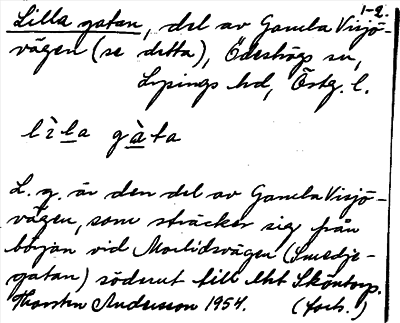 1-2.
Lilla gatan, del av Gamla Visjö-
vägen (se detta), Ödeshögs sn,
Lysings hd, Östg. l.
lìla gàta
L. g. är den del av Gamla Visjö-
vägen, som sträcker sig från
början vid Marlidsvägen (Smedje-
gatan) söderut till lht Sköntorp.
Thorsten Andersson 1954. (forts.)